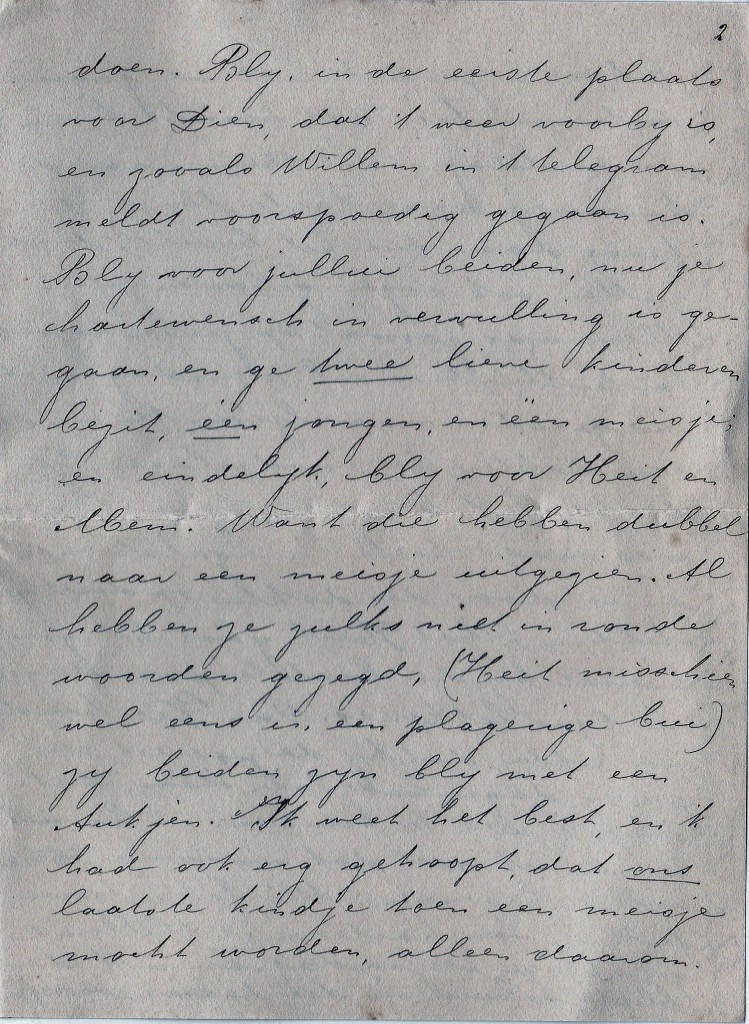 2
doen. Bly, in de eerste plaats
voor Dien, dat 't weer voorby is,
en zooals Willem in 't telegram
meldt voorspoedig gegaan is.
Bly voor jullie beiden, nu je
hartewensch in vervulling is ge-
gaan, en ge twee lieve kinderen
bezit, één jongen, en één meisje;
en eindelyk, bly voor Heit en
Mem. Want die hebben dubbel
naar een meisje uitgezien. Al
hebben ze zulks niet in ronde
woorden gezegd, (Heit misschien
wel eens in een plagerige bui)
zy beiden zyn bly met een
Aukjen. Ik weet het best, en ik
had ook erg gehoopt, dat ons
laatste kindje toen een meisje
mocht worden, alleen daarom.